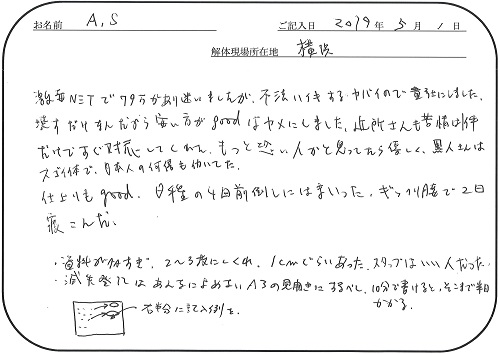 お名前 A,S ご記入日 2019年 5月 1日
解体現場所在地 横浜
激安NETで79万があり迷いましたが、不法ハイキするとヤバイので貴社にしました。
壊すだけなんだから安い方がgoodはヤメにしました。近所さんも苦情は1件
だけですぐ対応してくれて、もっと恐い人かと思ってたら優しく、黒人さんは
スゴイ体で、日本人の何倍も働いてた。
仕上りもgood. 日程の4日前倒しにはまいった。ギックリ腰で2日
寝こんだ。
・資料が多すぎ、2~3度にくれ、1cmぐらいあった。スタッフはいい人だった
・滅失登記はあんなによめない A3の見開きにするべし、10分で書けると、そこまで半日
かかる。
右半分に記入例を。